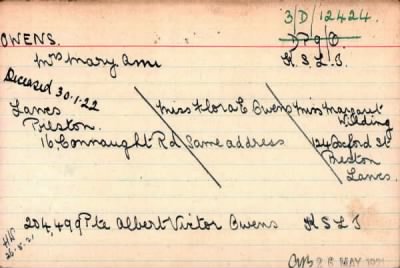 3/D/12424.
OWENS.
D P 9/O
Mrs Mary Ann
K. S. L. I.
Deceased 30.1.22
Lancs
Preston.
16, Connaught Rd
Miss Flora E Owens
Same address
Miss Margaret
Wilding
124 Oxford St
Preston
Lancs.
204,499 Pte Albert Victor Owens K S L I
26.5.21
26 MAY 1921